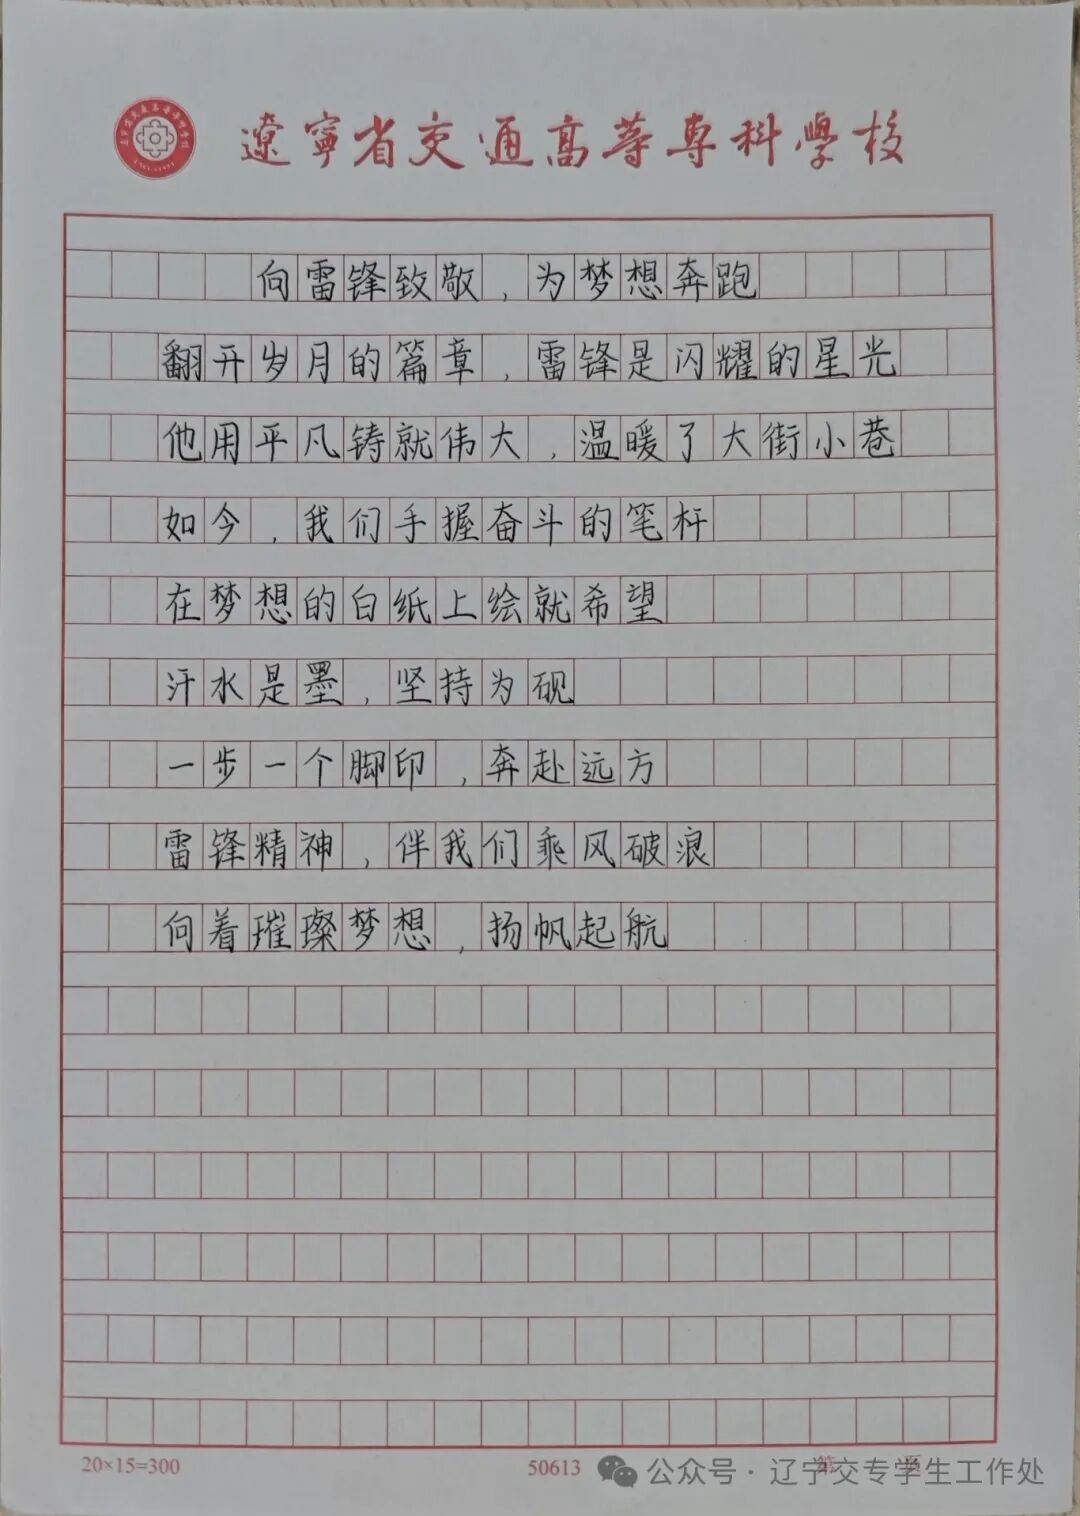 遼寧省交通高等專科學校
向雷锋致敬，为梦想奔跑
翻开岁月的篇章，雷锋是闪耀的星光
他用平凡铸就伟大，温暖了大街小巷
如今，我们手握奋斗的笔杆
在梦想的白纸上绘就希望
汗水是墨，坚持为砚
一步一个脚印，奔赴远方
雷锋精神，伴我们乘风破浪
向着璀璨梦想，扬帆起航
20×15=300
50613
第 页
公众号·辽宁交专学生工作处